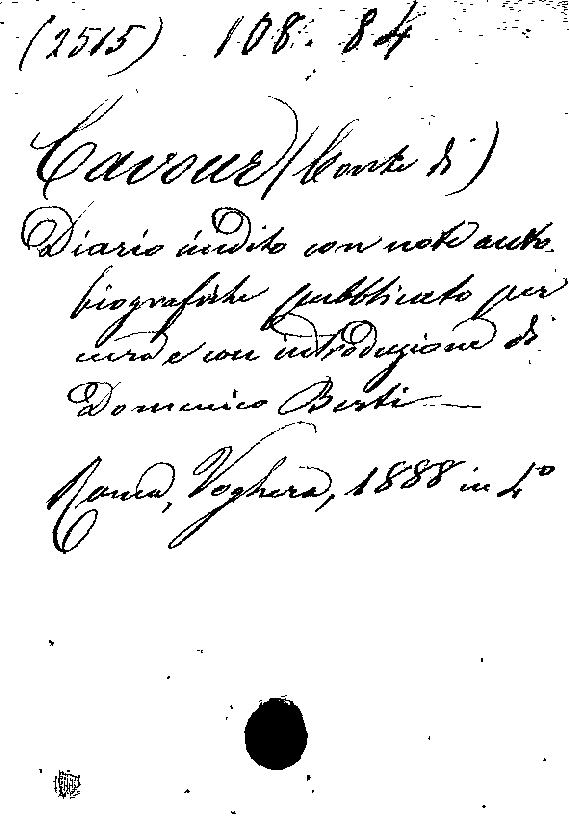 (2515) 108. 84
Cavour (Conte di)
Diario inedito con note auto
biografiche pubblicato per
cura e con introduzione di
Domenico Berti —
Roma, Voghera, 1888 in 4°